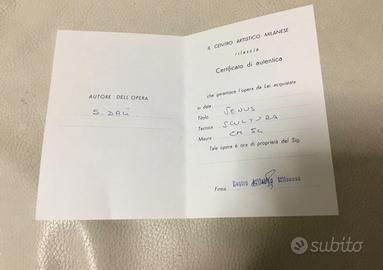 AUTORE DELL'OPERA
S. DALÌ
IL CENTRO ARTISTICO MILANESE
rilascia
Certificato di autentica
che garantisce l'opera da Lei acquistata
in data
Titolo VENUS
Tecnica SCULTURA
Misura CM 54
Tale opera è ora di proprietà del Sig.
Firma
subito